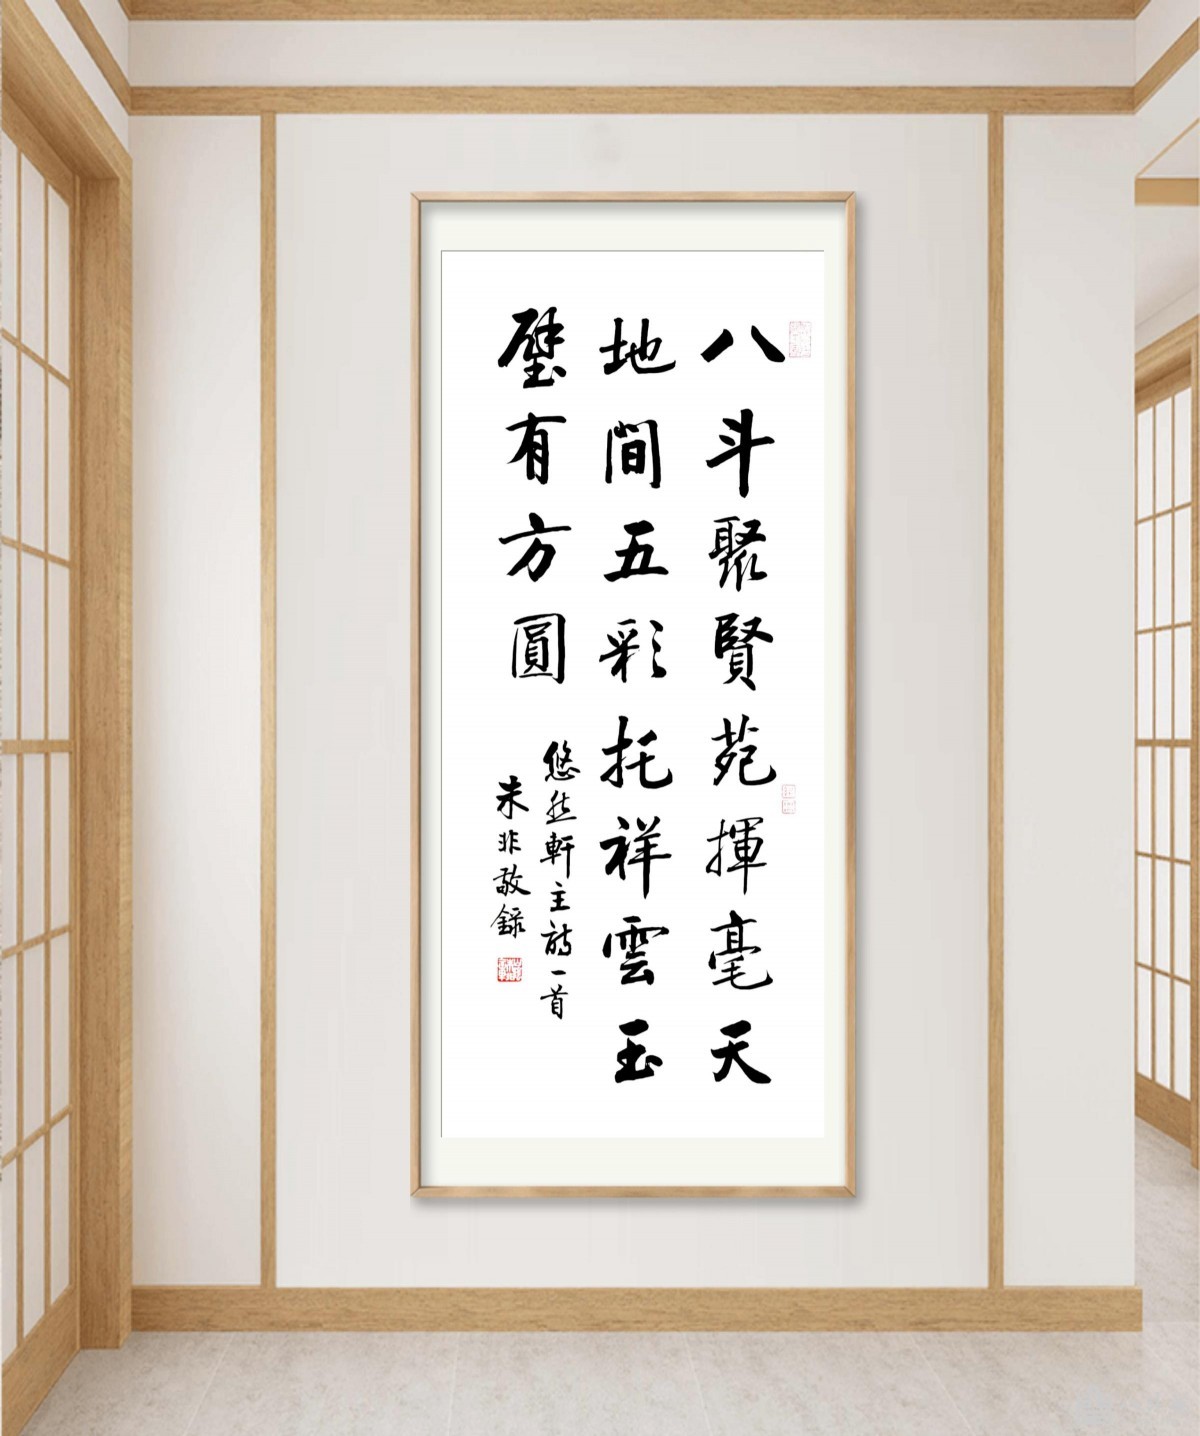 八斗聚賢苑揮毫天
地間五彩托祥雲玉
璧有方圓
悠然軒主詩一首
朱非敬錄